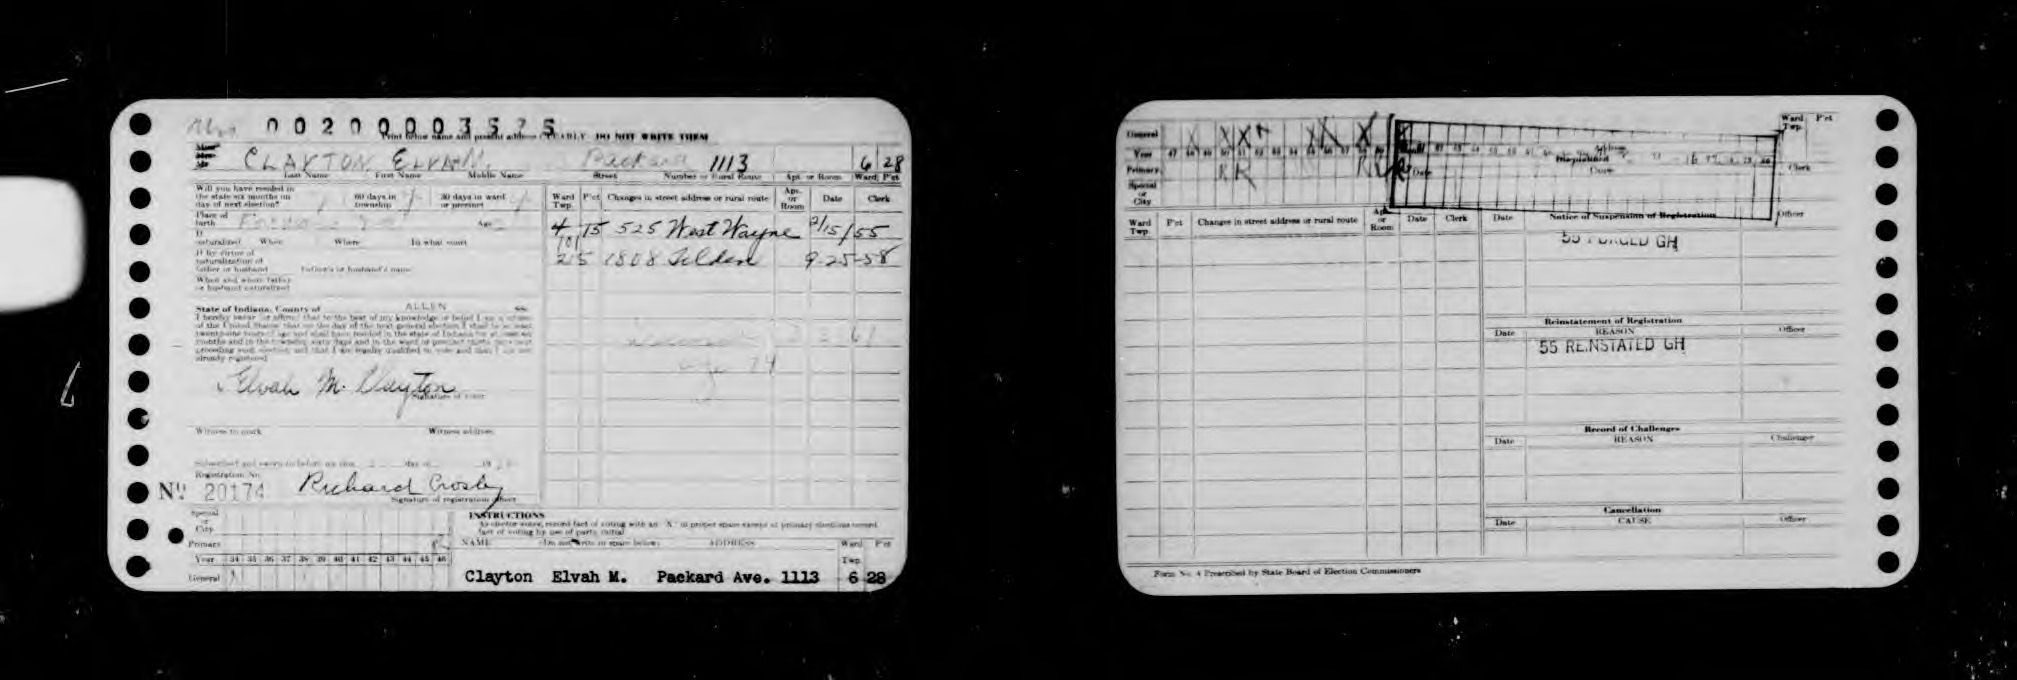 00200003525
Print below name and present address CLEARLY DO NOT WRITE THEM
CLAYTON ELVAH M. Packard 1113 6 28
Last Name First Name Middle Name Street Number or Rural Route Apt. or Room Ward P'ct
Will you have resided in
the state six months on 60 days in 30 days in ward
day of next election? township or precinct
Place of
birth Age
If
naturalized When Where In what court
If by virtue of
naturalization of
father or husband Father's or husband's name
When and where father
or husband naturalized
Ward Twp. P'ct Changes in street address or rural route Apt. or Room Date Clerk
4 15 525 West Wayne 2/15/55
101
2 5 1808 Tilden 9-25-58
State of Indiana, County of ALLEN ss:
I hereby swear or affirm that to the best of my knowledge or belief I am a citizen
of the United States; that on the day of the next general election I shall be at least
twenty-one years of age and shall have resided in the state of Indiana for at least six
months and in the township sixty days and in the ward or precinct thirty days next
preceding said election; and that I am legally qualified to vote and that I am not
already registered
age 74
Elvah M. Clayton
Signature of voter
Witness to mark Witness address
Subscribed and sworn to before me this day of 19
Registration No.
Nº 20174 Richard Crosby
Signature of registration officer
Special
or
City
Primary R
Year 34 35 36 37 38 39 40 41 42 43 44 45 46
General
INSTRUCTIONS
As elector votes, record fact of voting with an X in proper space except at primary elections record
fact of voting by use of party initial
NAME (Do not write in space below) ADDRESS Ward Twp. P'ct
Clayton Elvah M. Packard Ave. 1113 6 28
General X X X X X X
Year 47 48 49 50 51 52 53 54 55 56 57 58 59
Primary R R R
Special
or
City
Date
Ward Twp. P'ct
Clerk
Ward Twp. P'ct Changes in street address or rural route Apt. or Room Date Clerk
Date Notice of Suspension of Registration Officer
55 PURGED GH
Reinstatement of Registration
Date REASON Officer
55 REINSTATED GH
Record of Challenges
Date REASON Challenger
Cancellation
Date CAUSE Officer
Form No. 4 Prescribed by State Board of Election Commissioners